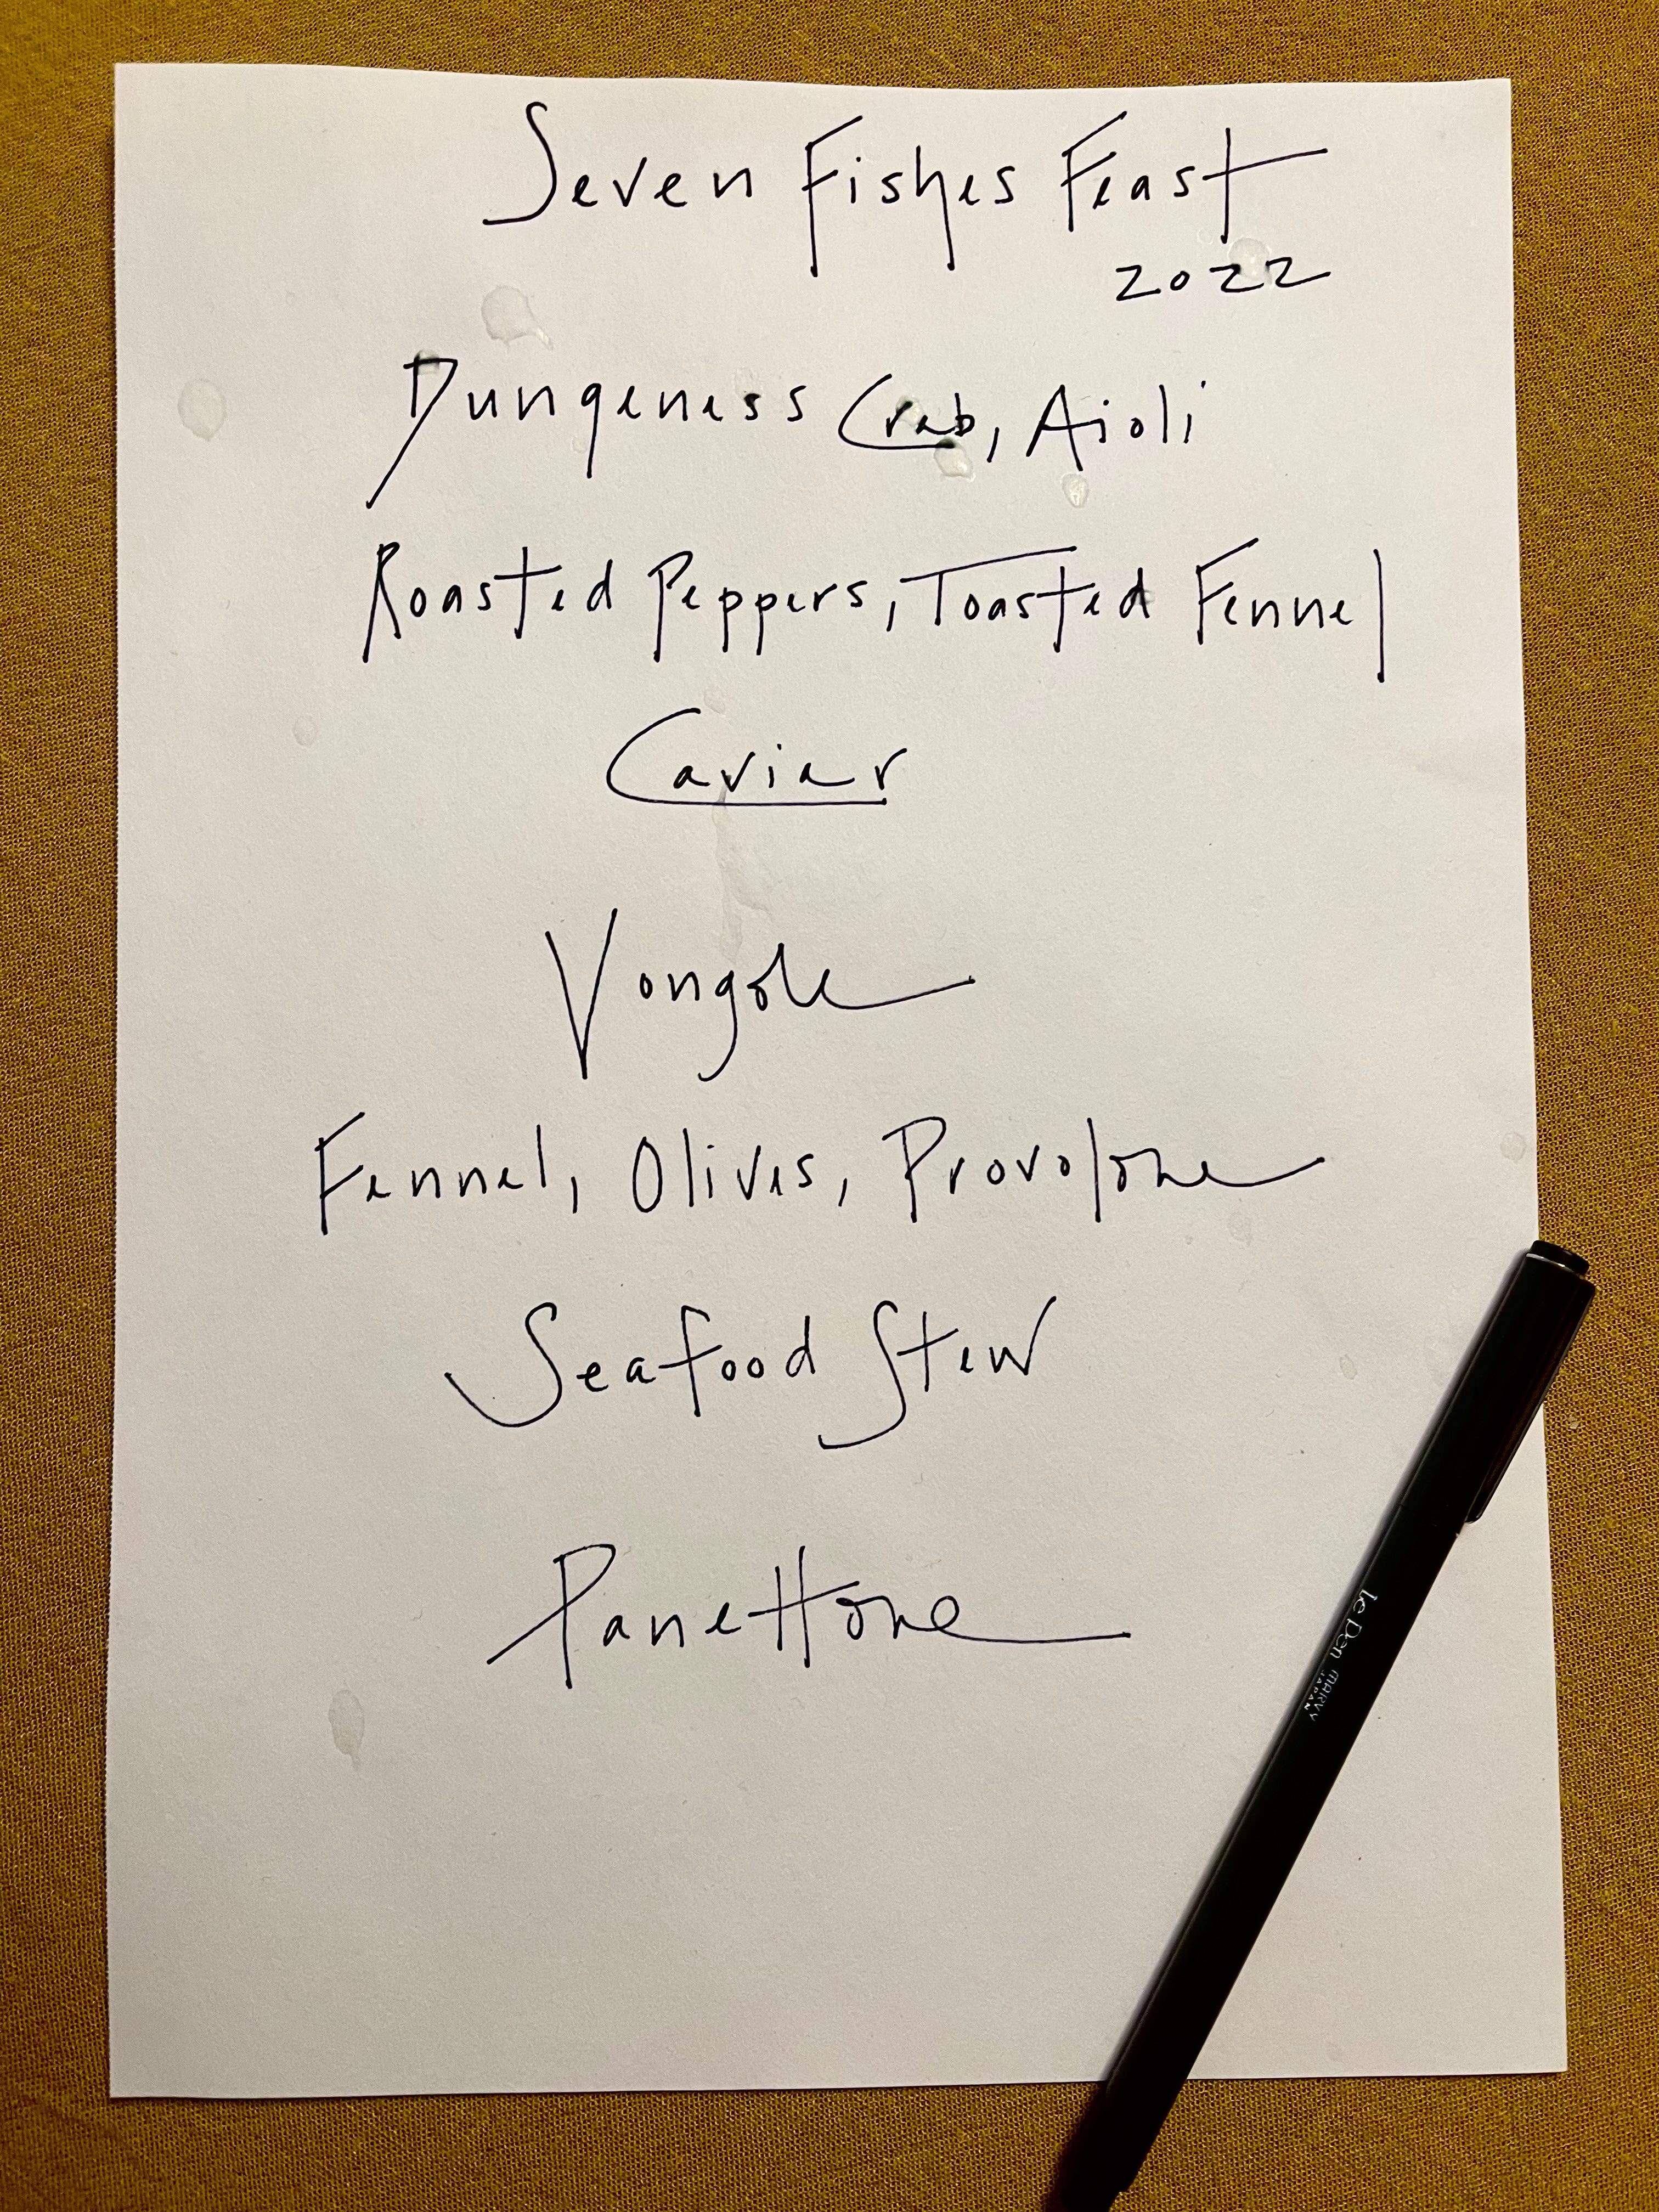 Seven Fishes Feast
2022
Dungeness Crab, Aioli
Roasted Peppers, Toasted Fennel
Caviar
Vongole
Fennel, Olives, Provolone
Seafood Stew
Panettone
Le Pen MARVY
JAPAN